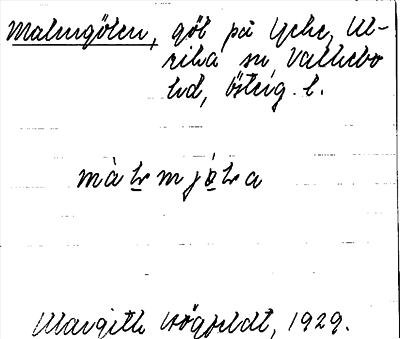 Malmgölen, göl på Yche, Ul-
rika sn Valkebo
hd, Österg. l.
Margith Högfeldt, 1929.